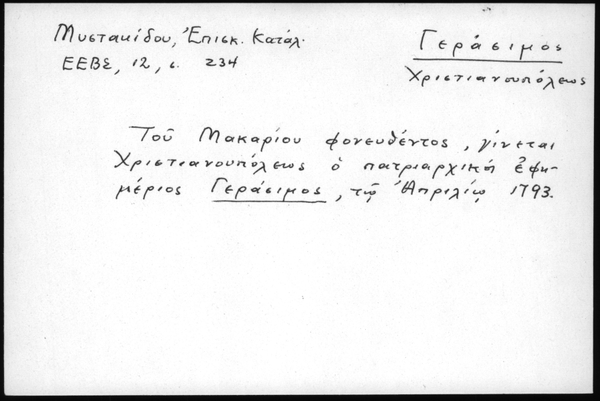 Μυστακίδου, Ἐπισκ. Κατάλ.
ΕΕΒΣ, 12, σ. 234
Γεράσιμος
Χριστιανουπόλεως
Τοῦ Μακαρίου φονευθέντος, γίνεται
Χριστιανουπόλεως ὁ πατριαρχικὸς ἐφη-
μέριος Γεράσιμος, τῷ Ἀπριλίῳ 1793.